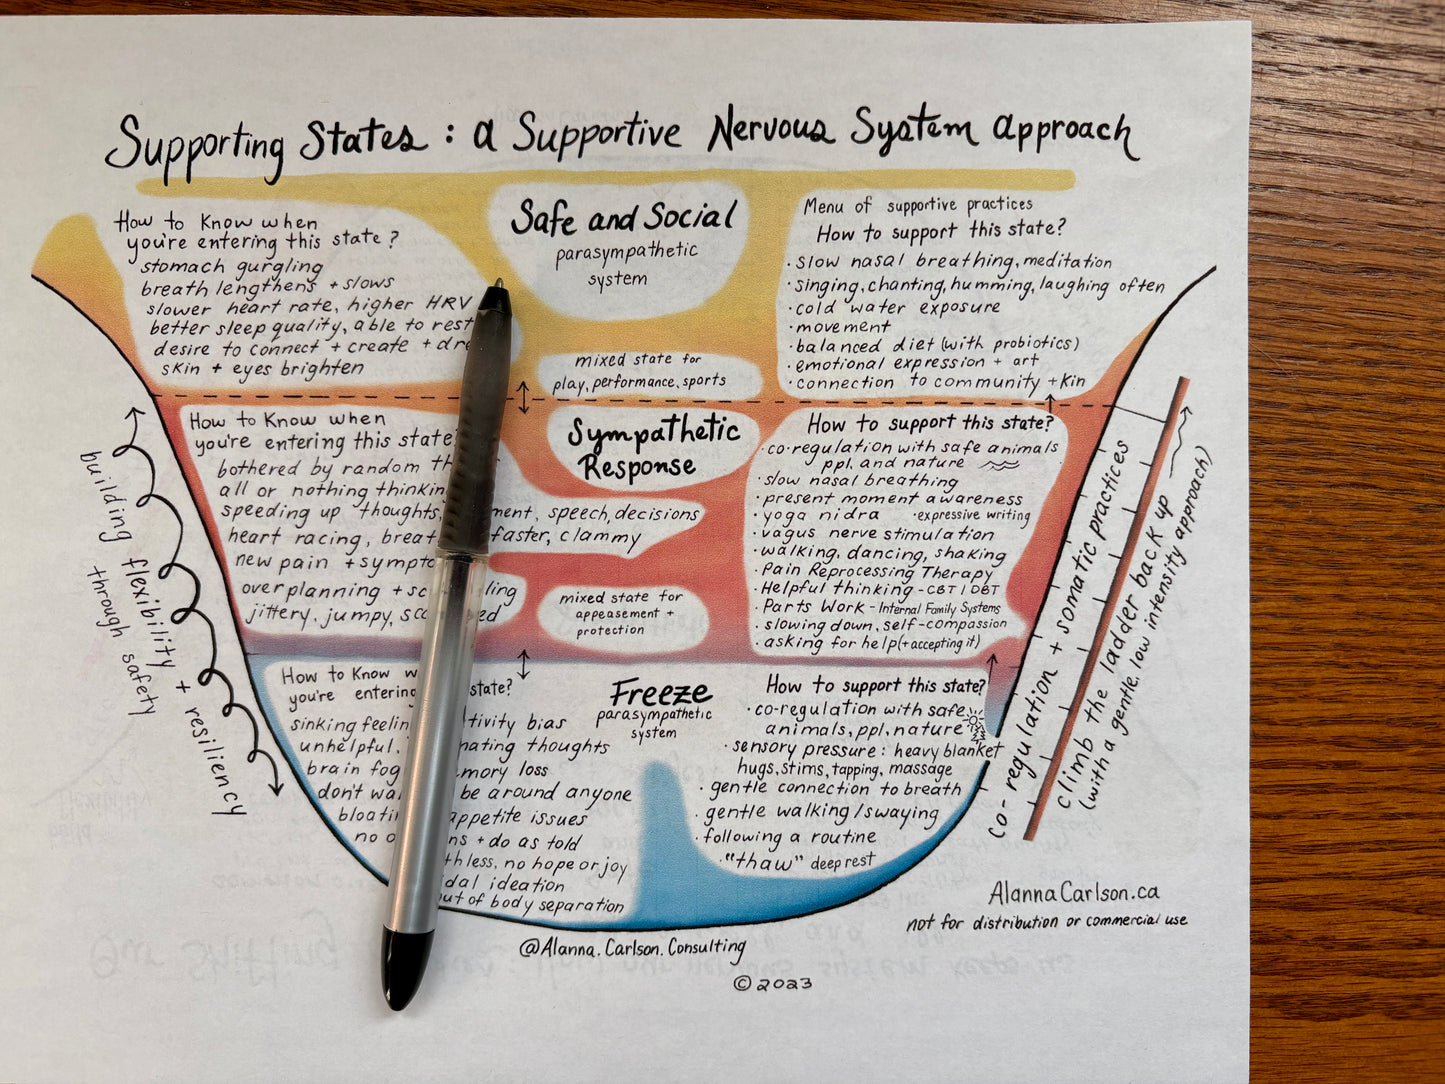 Supporting States: a Supportive Nervous System approach
How to Know when
you're entering this state?
stomach gurgling
breath lengthens + slows
slower heart rate, higher HRV
better sleep quality, able to rest
desire to connect + create +
skin + eyes brighten
Safe and Social
parasympathetic
system
mixed state for
play, performance, sports
Menu of supportive practices
How to support this state?
· slow nasal breathing, meditation
· singing, chanting, humming, laughing often
· cold water exposure
· movement
· balanced diet (with probiotics)
· emotional expression + art
· connection to community + kin
How to Know when
you're entering this state?
bothered by random
all or nothing
speeding up thoughts, speech, decisions
heart racing, faster, clammy
new pain +
overplanning +
jittery, jumpy,
Sympathetic
Response
mixed state for
appeasement +
protection
How to support this state?
· co-regulation with safe animals
ppl, and nature
· slow nasal breathing
· present moment awareness
· yoga nidra · expressive writing
· vagus nerve stimulation
· walking, dancing, shaking
· Pain Reprocessing Therapy
· Helpful thinking - CBT / DBT
· Parts Work - Internal Family Systems
· slowing down, self-compassion
· asking for help (+ accepting it)
How to Know
you're entering state?
sinking bias
unhelpful, thoughts
brain fog loss
don't be around anyone
appetite issues
no + do as told
no hope or joy
ideation
out of body separation
Freeze
parasympathetic
system
How to support this state?
· co-regulation with safe
animals, ppl, nature
· sensory pressure: heavy blanket
hugs, stims, tapping, massage
· gentle connection to breath
· gentle walking / swaying
· following a routine
· "thaw" deep rest
building flexibility + resiliency
through safety
co-regulation + somatic practices
climb the ladder back up
(with a gentle, low intensity approach)
AlannaCarlson.ca
not for distribution or commercial use
@Alanna.Carlson.Consulting
© 2023